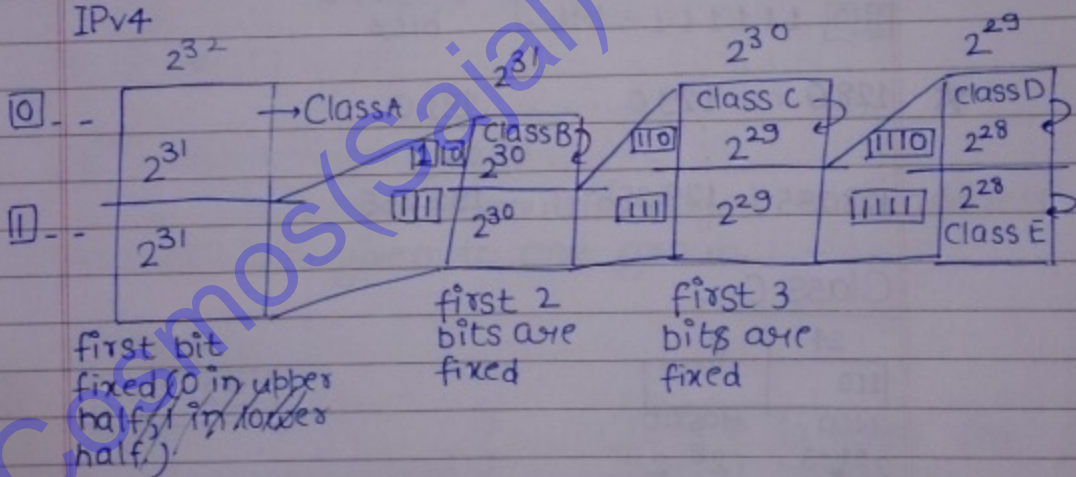 IPv4
2^32
2^31
2^30
2^29
0 - -
→ Class A
2^31
1 - -
2^31
10
class B
2^30
11
2^30
110
class C
2^29
111
2^29
1110
class D
2^28
1111
2^28
Class E
first bit
fixed (0 in upper
half, 1 in lower
half)
first 2
bits are
fixed
first 3
bits are
fixed
Cosmos(Sajal)